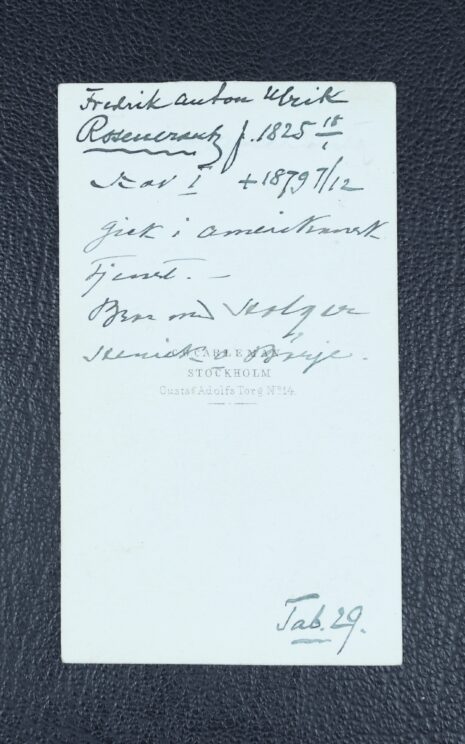 Fredrik Anton Ulrik
Rosencrantz f. 1825 18/1
I + 1879 7/12
Gick i amerikansk
tjenst. –
Bror med Holger
Henrick o Börje.
CARLEMAN
STOCKHOLM
Gustaf Adolfs Torg No 14.
Tab. 29.